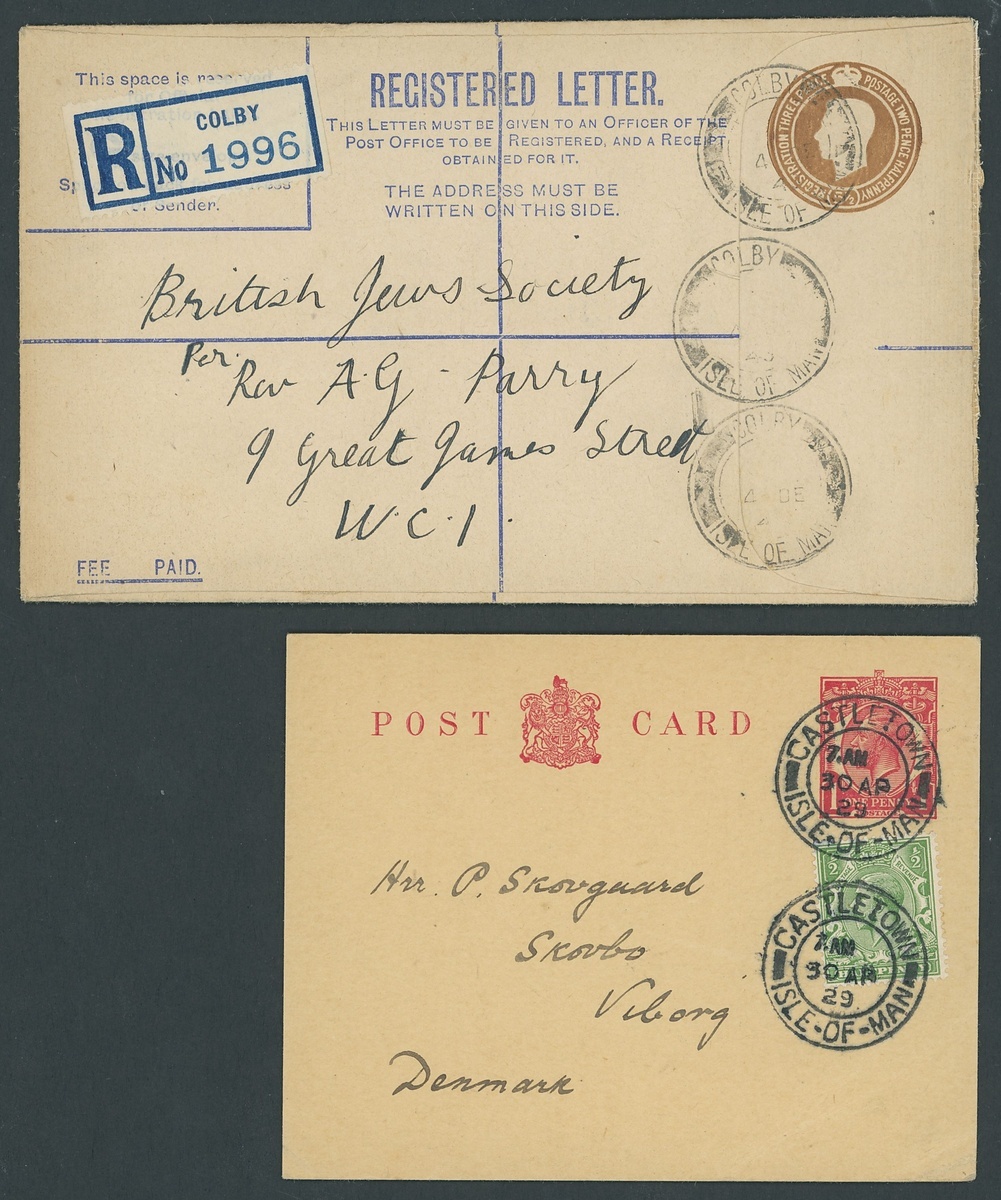 This space is
R
COLBY
No 1996
of Sender.
REGISTERED LETTER.
THIS LETTER MUST BE GIVEN TO AN OFFICER OF THE
POST OFFICE TO BE REGISTERED, AND A RECEIPT
OBTAINED FOR IT.
THE ADDRESS MUST BE
WRITTEN ON THIS SIDE.
COLBY
ISLE OF
REGISTRATION THREE
POSTAGE TWO PENCE HALFPENNY
British Jews Society
Per.
Rev A.G - Parry
9 Great James Street
W.C.1.
COLBY
43
ISLE OF MAN
COLBY
4 DE
ISLE OF MAN
FEE PAID.
POST CARD
1
ONE PENNY
CASTLETOWN
7.AM
30 AP
29
ISLE-OF-MAN
Hrr. P. Skovgaard
Skovbo
Viborg
Denmark
½ ½
CASTLETOWN
7.AM
30 AP
29
ISLE-OF-MAN